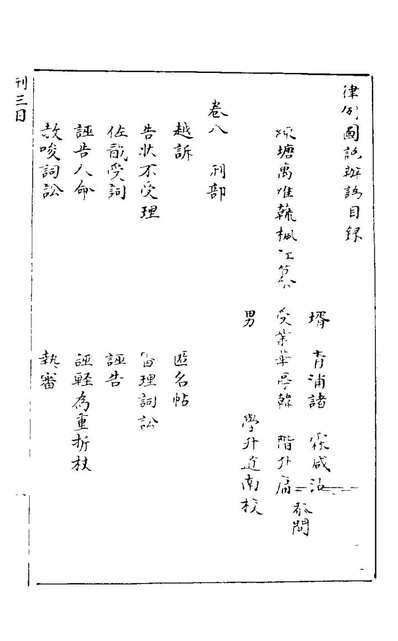 律例圖說辨譌目錄
塘萬維翰楓江纂
壻 青浦諸 霖咸沾
受業華亭韓 階升庸
參閱
男 學升近南校
卷八 刑部
越訴 匿名帖
告狀不受理 審理詞訟
佐貳受詞 誣告
誣告人命 誣輕為重折杖
教唆詞訟 熱審
刊三目